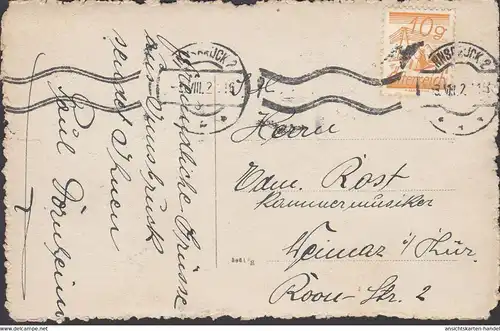 Freundliche Grüsse
aus Innsbruck
sendet Ihnen
Paul
INNSBRUCK 2
VIII. 2
10g
Österreich
INNSBRUCK 2
VIII. 2
Herrn
Edm. Rost
Kammermusiker
Weimar i/Thür.
Roon-Str. 2
www.ansichtskarten-handel.com